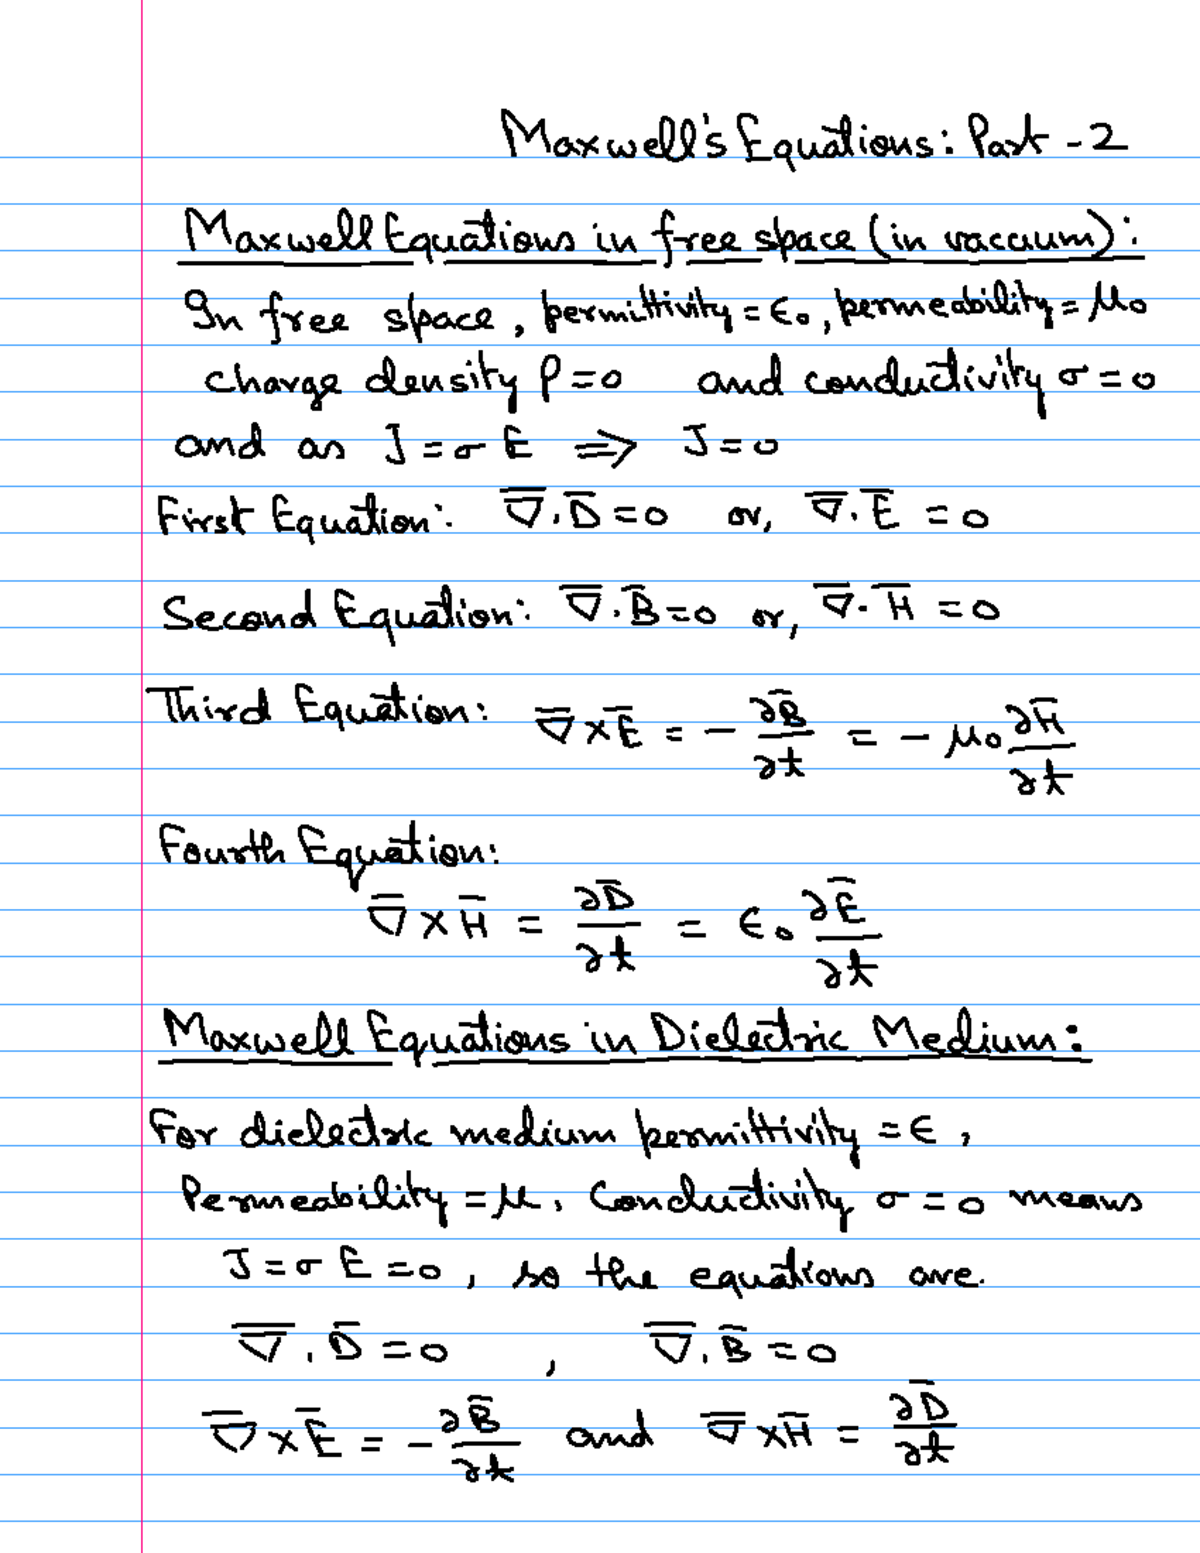 Maxwell's Equations: Part -2
Maxwell Equations in free space (in vaccum):
In free space, permittivity = ϵ₀, permeability = μ₀
charge density ρ=0 and conductivity σ=0
and as J = σ E ⇒ J=0
First Equation: ∇̅.D̅=0 or, ∇̅.E̅ =0
Second Equation: ∇̅.B̅=0 or, ∇̅.H̅ =0
Third Equation: ∇̅×E̅ = - ∂B̅/∂t = - μ₀ ∂H̅/∂t
Fourth Equation:
∇̅×H̅ = ∂D̅/∂t = ϵ₀ ∂E̅/∂t
Maxwell Equations in Dielectric Medium:
For dielectric medium permittivity =ϵ,
Permeability =μ. Conductivity σ=0 means
J=σ E =0, so the equations are.
∇̅.D̅=0 , ∇̅.B̅=0
∇̅×E̅ = -∂B̅/∂t and ∇̅×H̅ = ∂D̅/∂t